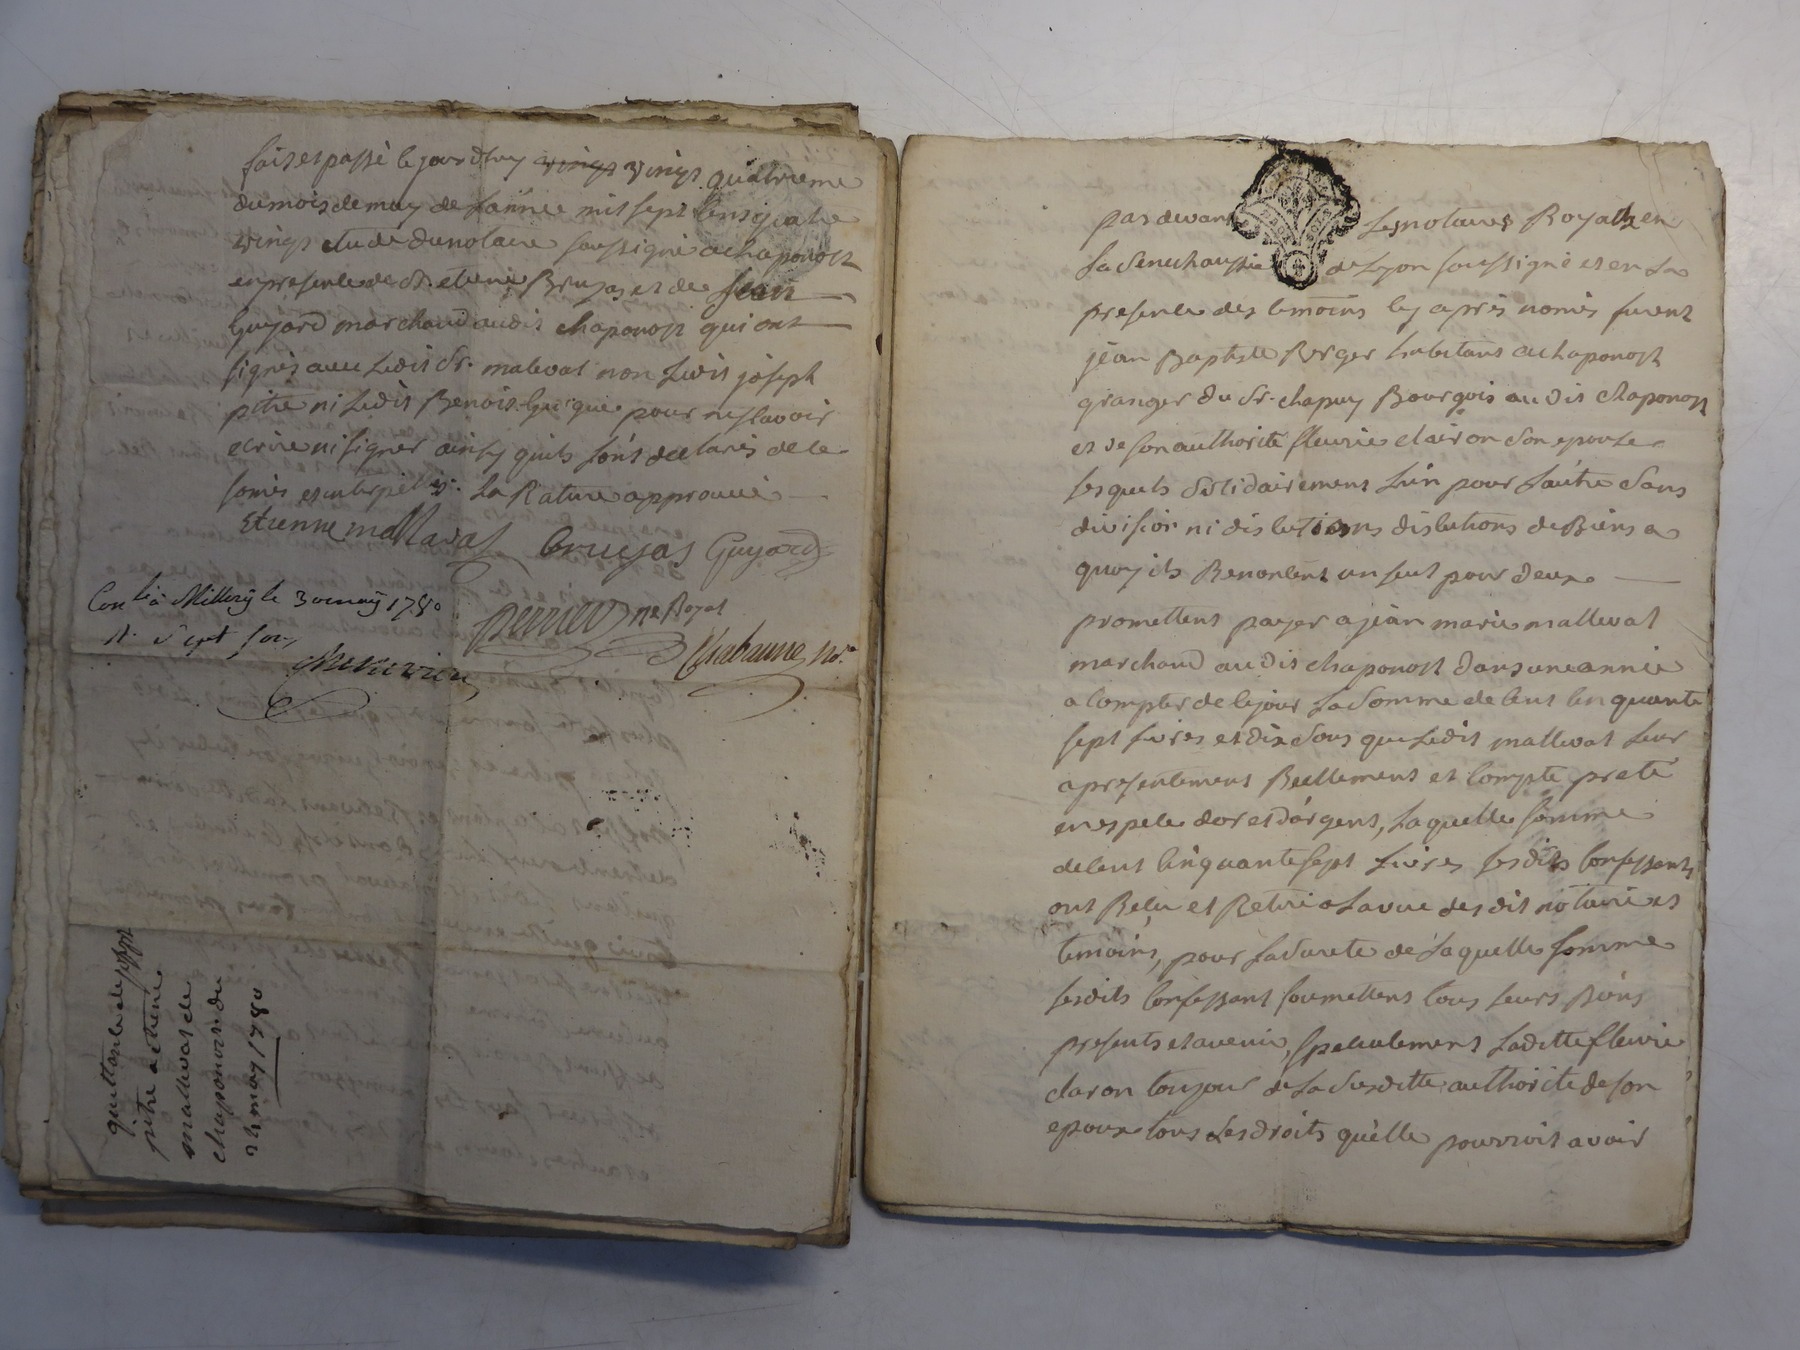 fait et passé le jourdhuy vingt vingt quatrieme
du mois de may de Lannée mil sept Cens quatre
vingt etude du notaire soussigné a chaponost
en presence de Sr. etienne Brujas et de Jean
Guyard marchand audit chaponost qui ont
signés avec Ledit Sr. malleval non Ledit joseph
pitre ni Ledit Benoit pour ne scavoir
ecrire ni signer ainsy quils sont declarés de ce
somés et interpellés. La Rature approuvée
Etienne mallaval Brujas Guyard
Con lé a Millery le 30 may 1780
R. sept sous
perrier ne Royal
Chabanne no.re
quittance de joseph
pitre a etienne
malleval de
chaponost du
24 may 1780
pardevant Les notaires Royaux en
La Senechaussée de Lyon soussigné et en La
presence des temoins cy après només furent
jean Baptiste Berger habitant a chaponost
granger du Sr. chapuy Bourgois audit chaponost
et de son authorité fleurie claron son epouse
lesquels Solidairement L'un pour L'autre Sans
division ni discutions discutions de Biens a
quoy ils Renoncent un seul pour deux
promettent payer a jean marie malleval
marchand audit chaponost dans une année
a Compter de ce jour La Somme de Cent Cinquante
sept Livres et dix Sous que Ledit malleval Leur
a presentement Reellement et Compté preté
en espece dor et d'argent, Laquelle somme
de Cent Cinquante sept Livres Lesdits Confessants
ont Reçu et Retiré a La vue desdit notaire et
temoins, pour La Sureté de Laquelle somme
Lesdits Confessant soumettent tous Leurs Biens
presents et avenir, specialement Laditte fleurie
claron toujour de La Susditte authorité de son
epoux tous Les droits qu'elle pourroit avoir